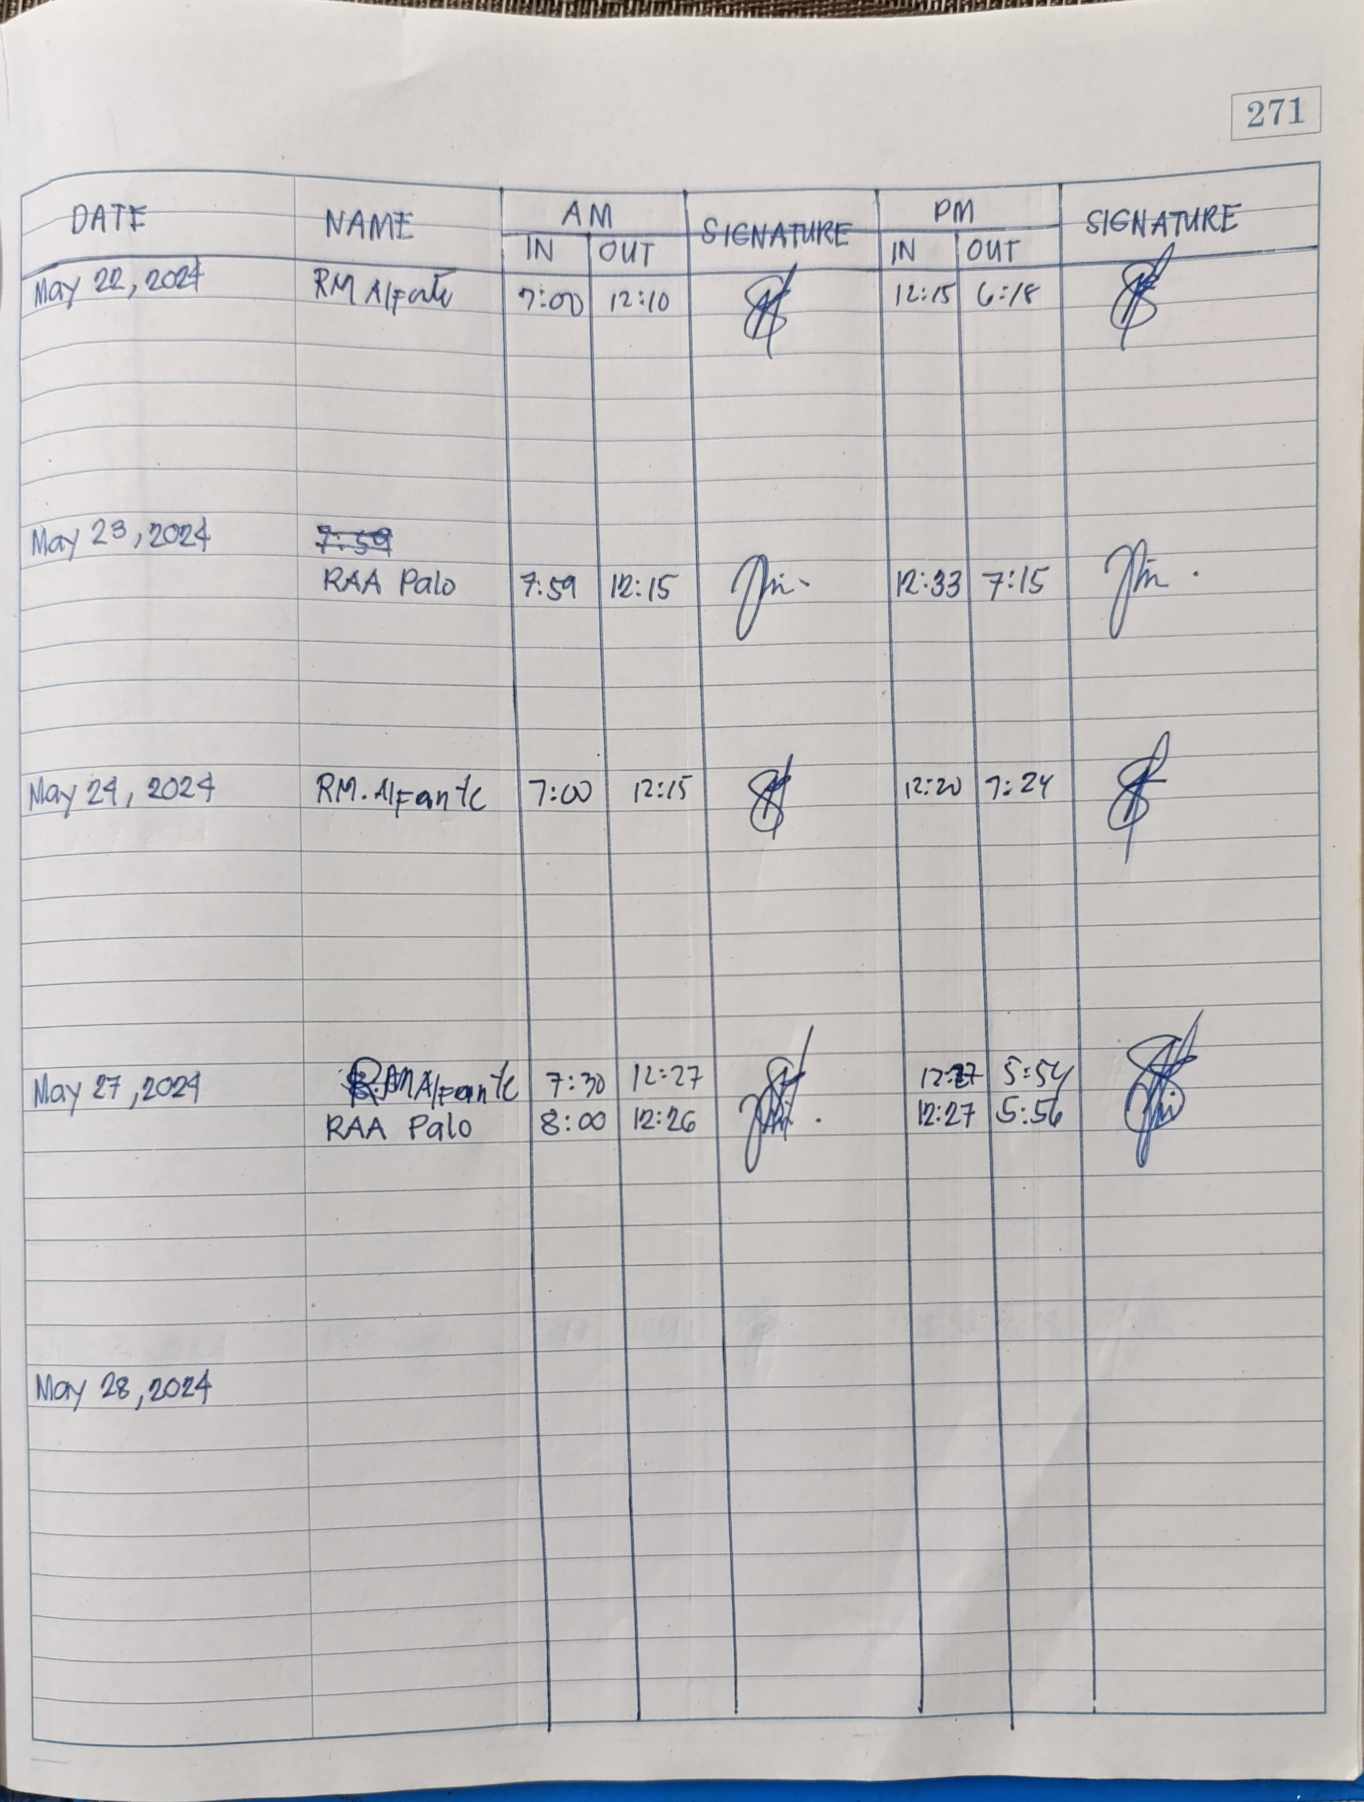 271
DATE NAME AM SIGNATURE PM SIGNATURE
IN OUT IN OUT
May 22, 2024 RM Alfante 7:00 12:10 12:15 6:18
May 23, 2024 7:59
RAA Palo 7:59 12:15 12:33 7:15
May 24, 2024 RM. Alfante 7:00 12:15 12:20 7:24
May 27, 2024 RM Alfante 7:30 12:27 12:27 5:54
RAA Palo 8:00 12:26 12:27 5:56
May 28, 2024